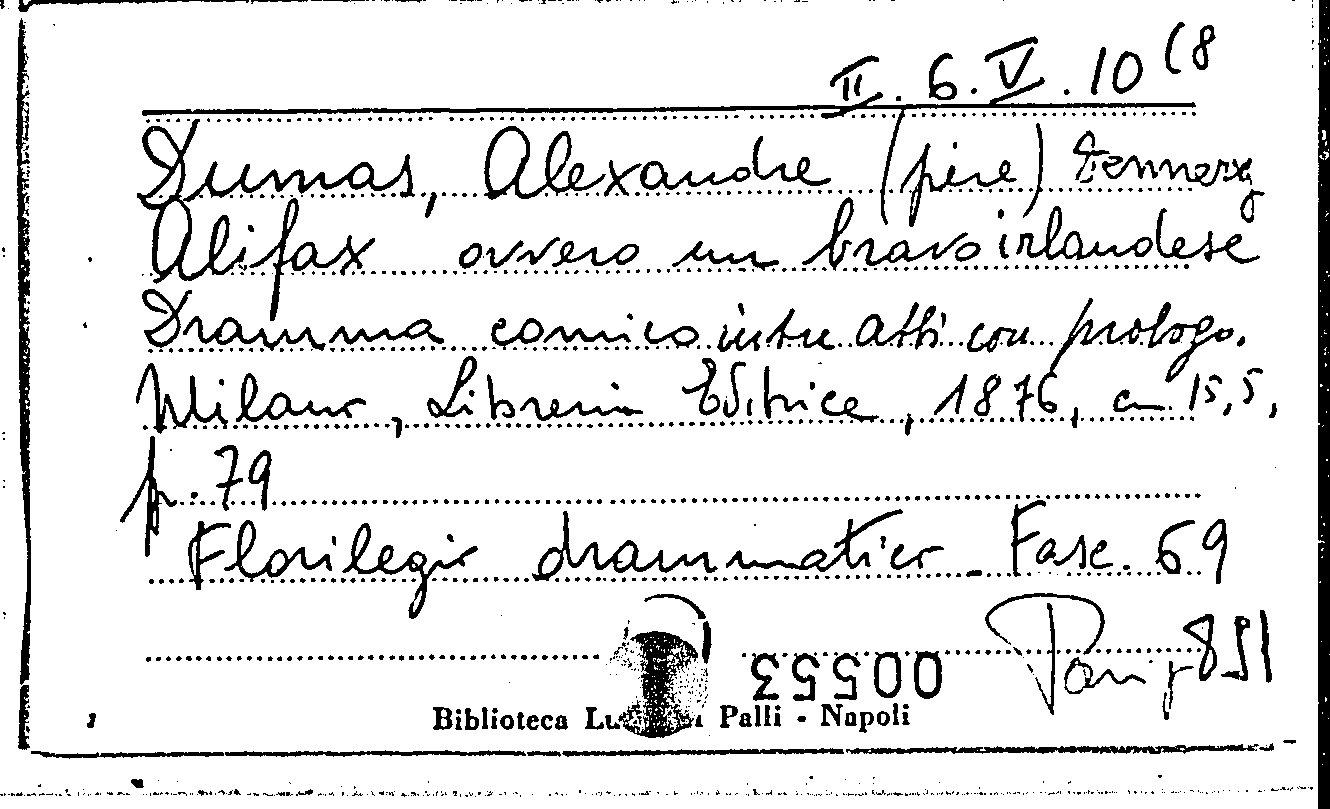 II. 6. V. 10 (8
Dumas, Alexandre (père)
Alifax ovvero un bravo irlandese
Dramma comico in tre atti con prologo.
Milano, Libreria Editrice, 1876, cm 15,5,
p. 79
Florilegio drammatico - Fasc. 69
00553
Biblioteca Lu Palli - Napoli
1